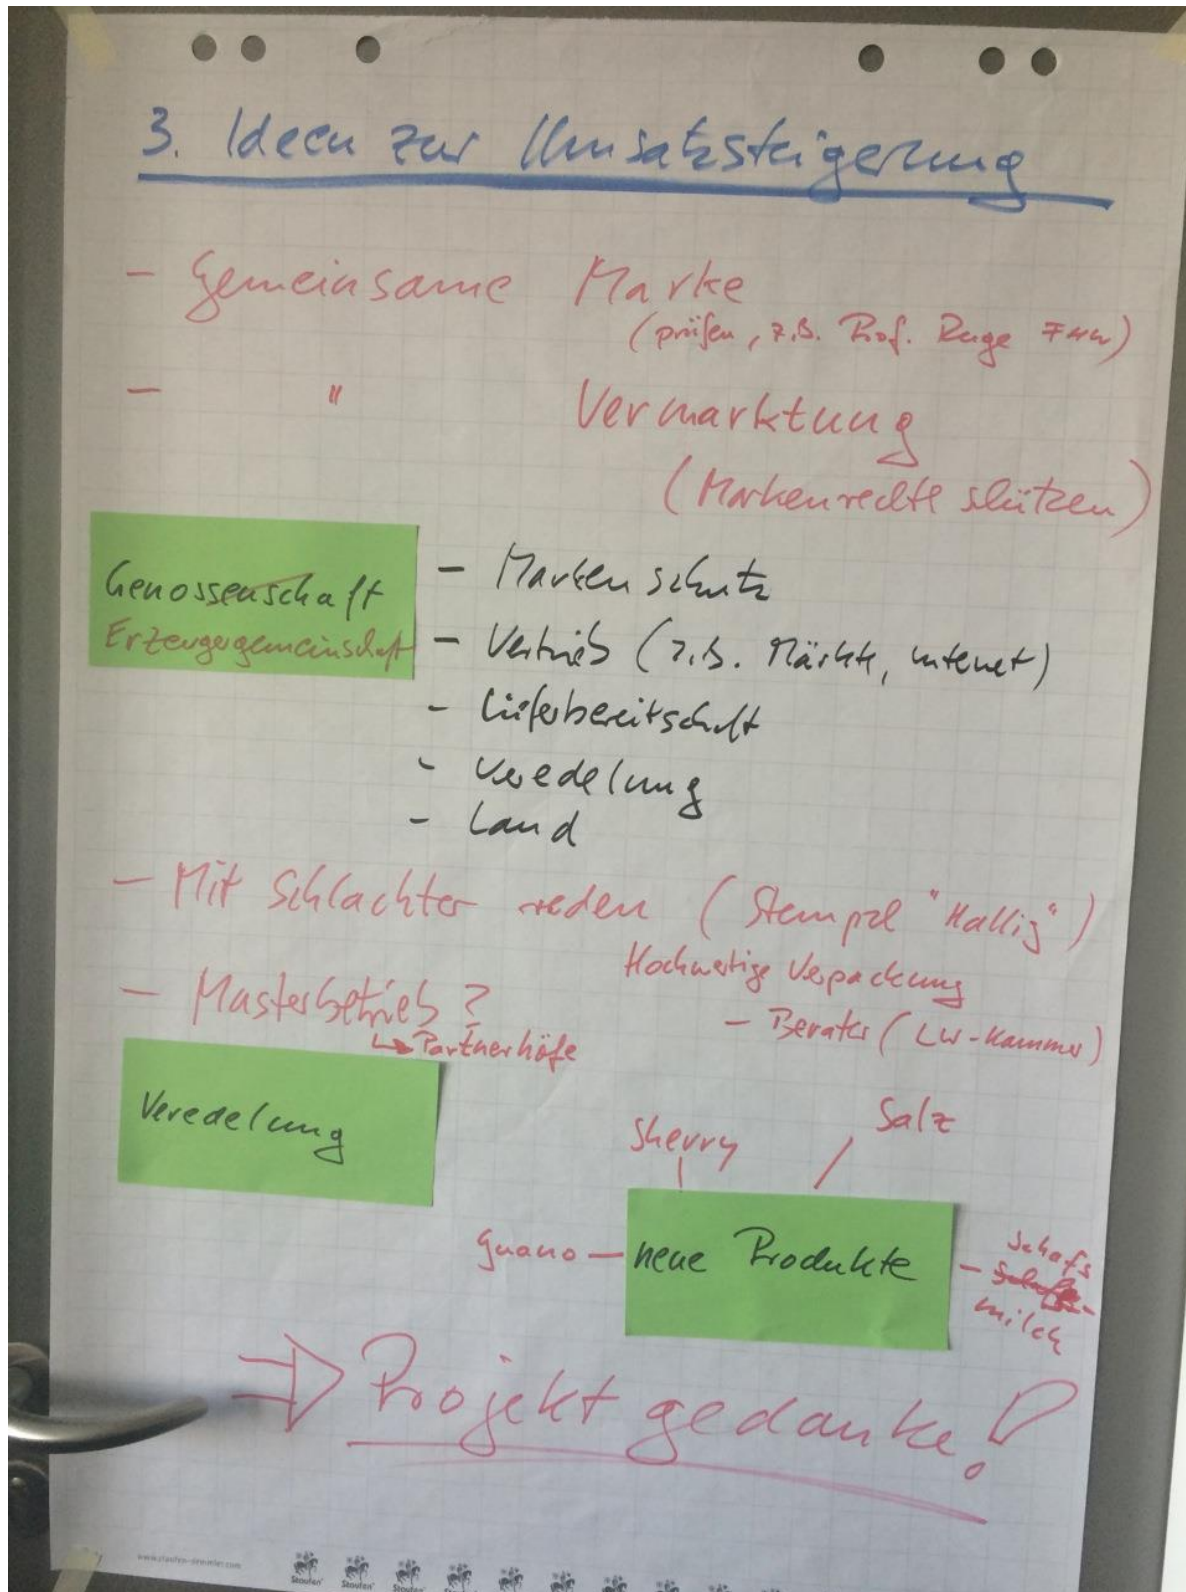 3. Ideen zur Umsatzsteigerung
- Gemeinsame Marke
(prüfen, z.B. Prof. Ruge FHW)
- " Vermarktung
(Markenrechte schützen)
Genossenschaft
Erzeugergemeinschaft
- Markenschutz
- Vertrieb (z.B. Märkte, Internet)
- Lieferbereitschaft
- Veredelung
- Land
- Mit Schlachter reden (Stempel "Hallig")
Hochwertige Verpackung
- Masterbetrieb?
- Berater (LW-Kammer)
↳ Partnerhöfe
Veredelung
Sherry
Salz
Guano - neue Produkte - Schafs
milch
⇒ Projektgedanke!
www.staufen-demmler.com
Staufen Staufen Staufen Staufen